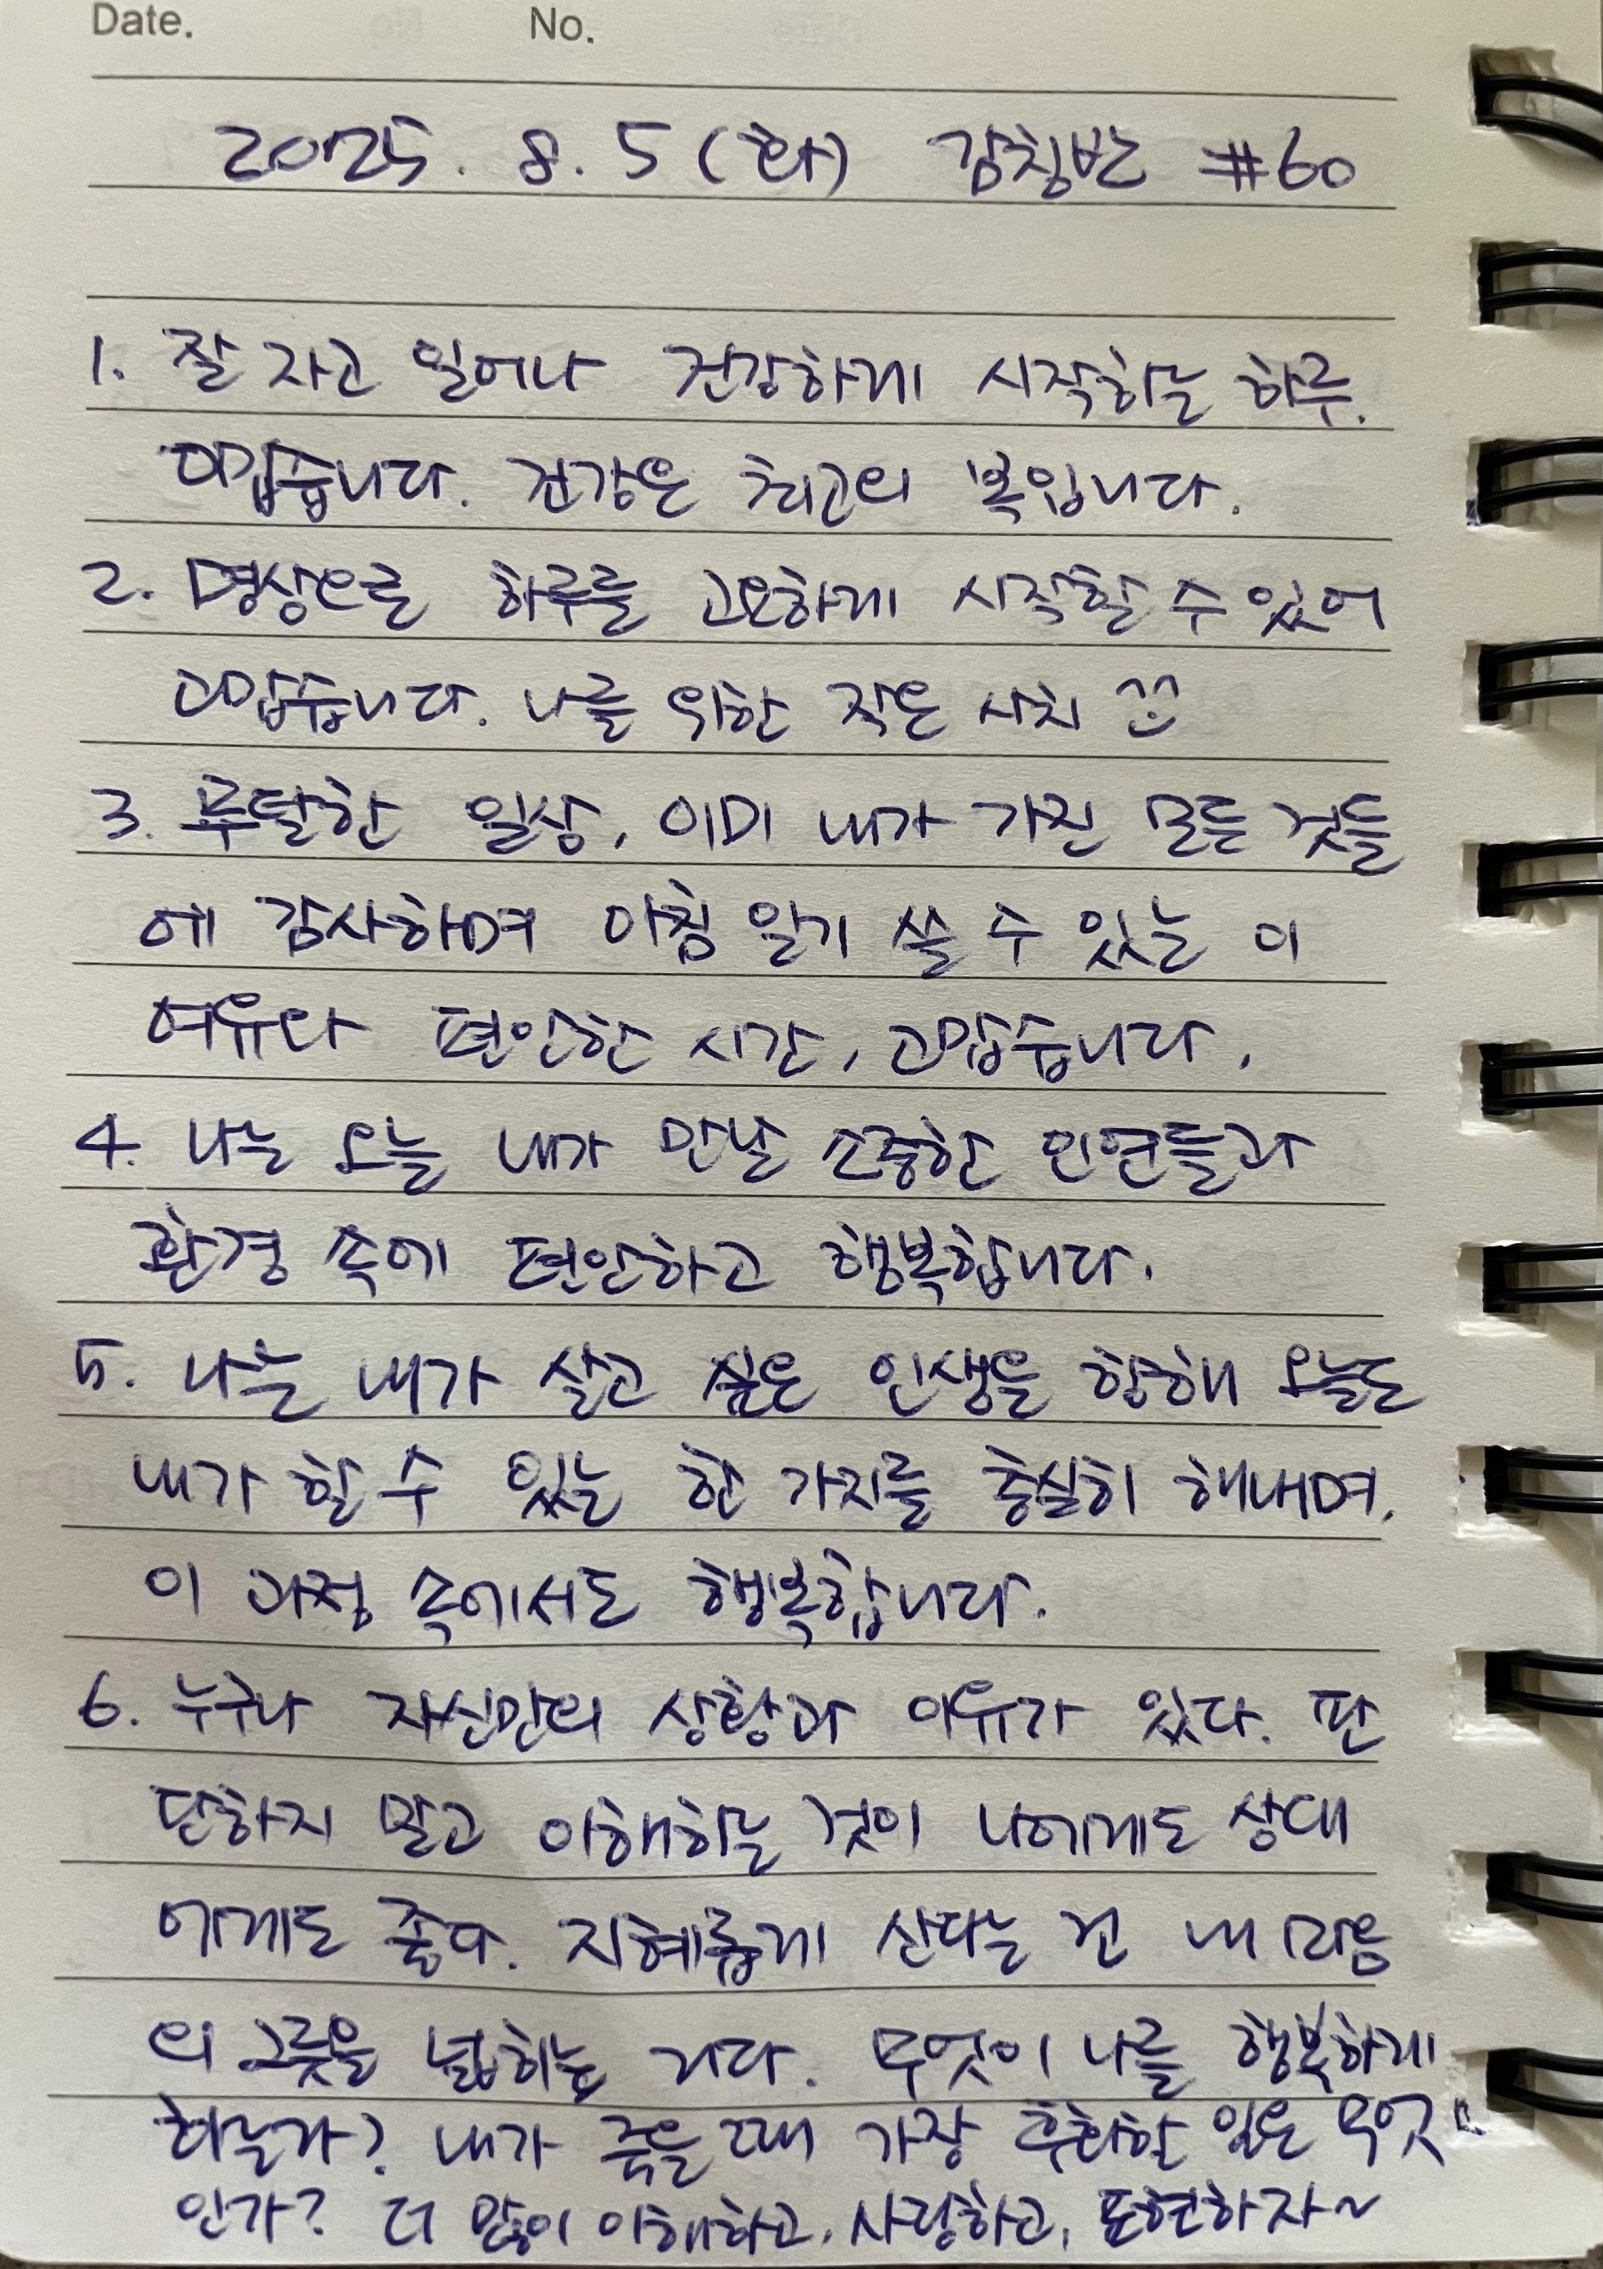 Date. No.
2025. 8. 5 (화) 감칭반 #60
1. 잘 자고 일어나 건강하게 시작하는 하루.
고맙습니다. 건강은 최고의 복입니다.
2. 명상으로 하루를 고요하게 시작할 수 있어
고맙습니다. 나를 위한 작은 사치 ^^
3. 무탈한 일상, 이미 내가 가진 모든 것들
에 감사하며 아침 일기 쓸 수 있는 이
여유와 편안한 시간, 고맙습니다.
4. 나는 오늘 내가 만날 소중한 인연들과
환경 속에 편안하고 행복합니다.
5. 나는 내가 살고 싶은 인생을 향해 오늘도
내가 할 수 있는 한 가지를 충실히 해내며,
이 과정 속에서도 행복합니다.
6. 누구나 자신만의 상황과 이유가 있다. 판
단하지 말고 이해하는 것이 나에게도 상대
에게도 좋다. 지혜롭게 산다는 건 내 마음
의 그릇을 넓히는 거다. 무엇이 나를 행복하게
하는가? 내가 죽을 때 가장 후회할 일은 무엇
인가? 더 많이 이해하고, 사랑하고, 표현하자~